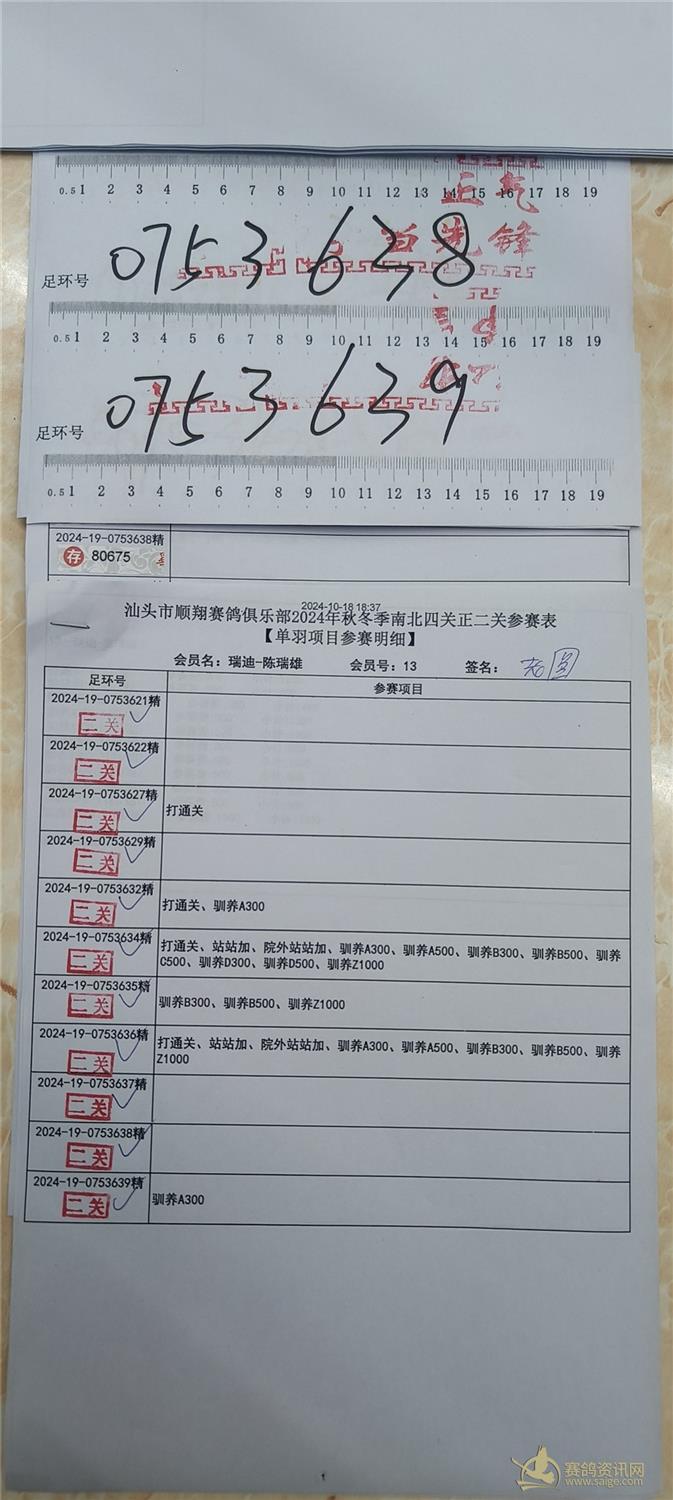 0.5 1 2 3 4 5 6 7 8 9 10 11 12 13 14 15 16 17 18 19
正气
先锋
足环号 0753638
0.5 1 2 3 4 5 6 7 8 9 10 11 12 13 14 15 16 17 18 19
足环号 0753639
0.5 1 2 3 4 5 6 7 8 9 10 11 12 13 14 15 16 17 18 19
2024-19-0753638精
存 80675
2024-10-18 18:37
汕头市顺翔赛鸽俱乐部2024年秋冬季南北四关正二关参赛表
【单羽项目参赛明细】
会员名：瑞迪-陈瑞雄 会员号：13 签名：
足环号 参赛项目
2024-19-0753621精
二关
2024-19-0753622精
二关
2024-19-0753627精
二关
打通关
2024-19-0753629精
二关
2024-19-0753632精
二关
打通关、驯养A300
2024-19-0753634精
二关
打通关、站站加、院外站站加、驯养A300、驯养A500、驯养B300、驯养B500、驯养
C500、驯养D300、驯养D500、驯养Z1000
2024-19-0753635精
二关
驯养B300、驯养B500、驯养Z1000
2024-19-0753636精
二关
打通关、站站加、院外站站加、驯养A300、驯养A500、驯养B300、驯养B500、驯养
Z1000
2024-19-0753637精
二关
2024-19-0753638精
二关
2024-19-0753639精
二关
驯养A300
赛鸽资讯网
www.saige.com